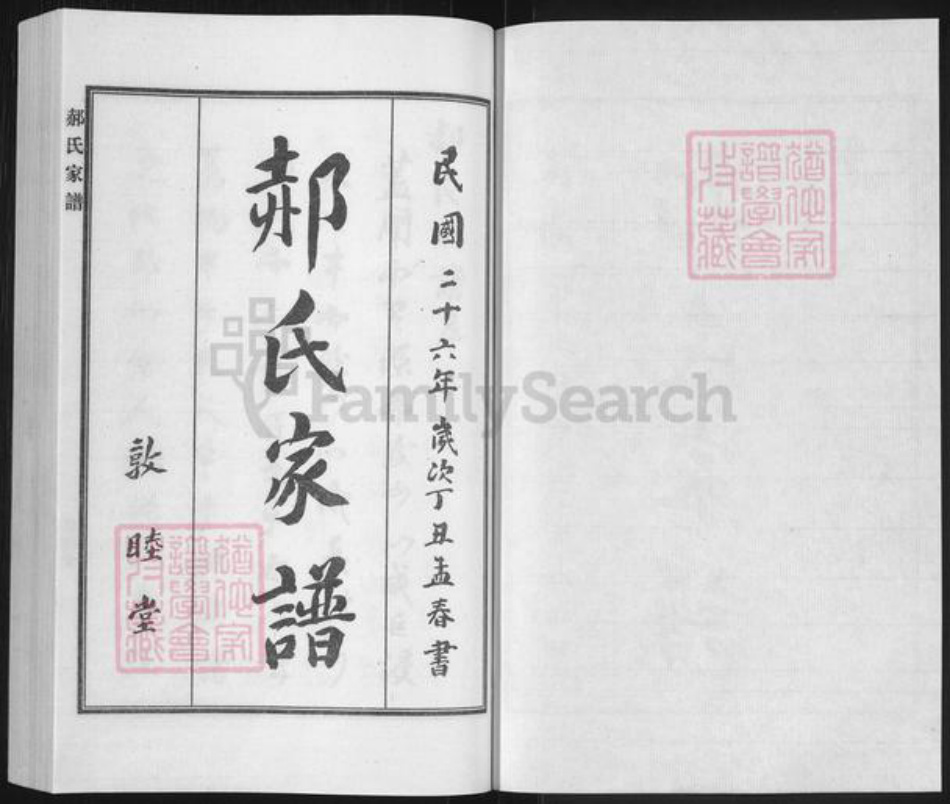 民國二十六年歲次丁丑孟春書
郝氏家譜
敦睦堂
郝氏家譜
猶他家
譜學會
特藏
猶他家
譜學會
特藏
FamilySearch